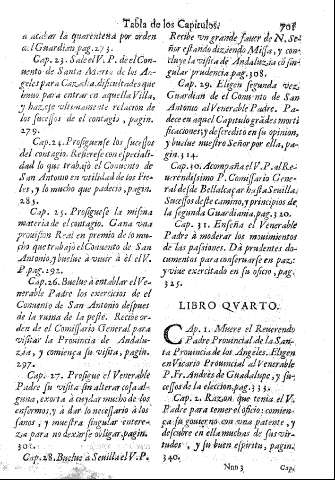 Tabla de los Capitulos.
à acabar la quarentena por orden
al Guardian, pag. 273.
Cap. 23. Sale el V. P. del Con-
uento de Santa Marta de los An-
geles para Cazalla, dificultades que
huuo para entrar en aquella Villa,
y hazese vltimamente relacion de
los sucessos de el contagio, pagin.
279.
Cap. 24. Prosiguense los sucessos
del contagio. Refierese con especiali-
dad lo que trabajò el Conuento de
San Antonio en vtilidad de los Fie-
les, y lo mucho que padeciò, pagin.
285.
Cap. 25. Prosiguese la misma
materia del contagio. Gana vna
prouision Real en premio de lo mu-
cho que trabajò el Conuento de San
Antonio, y buelue à viuir à èl el V.
P. pag. 292.
Cap. 26. Buelue à entablar el Ve-
nerable Padre los exercicios de el
Conuento de San Antonio despues
de la ruina de la peste. Recibe or-
den de el Comissario General para
visitar la Prouincia de Andalu-
zia, y comiença su visita, pagin.
297.
Cap. 27. Prosigue el Venerable
Padre su visita sin alterar cosa al-
guna, exorta à cuydar mucho de los
enfermos, y à dar lo necessario à los
sanos, y muestra singular entere-
za para no dexarse obligar, pagin.
302.
Cap. 28. Buelue à Seuilla el V. P.
Recibe vn grande fauor de N. Se-
ñor estando diziendo Missa, y con-
cluye la visita de Andaluzia cõ sin-
gular prudencia pag. 308.
Cap. 29. Eligen segunda vez
Guardian de el Conuento de San
Antonio al Venerable Padre. Pa-
dece en aquel Capitulo grãdes morti-
ficaciones, y descredito en su opinion,
y buelue nuestro Señor por ella, pa-
gin. 314.
Cap. 30. Acompaña el V. P. al Re-
uerendissimo P. Comissario Gene-
ral desde Belalcaçar hasta Seuilla.
Sucessos deste camino, y principios de
la segunda Guardiania, pag. 320.
Cap. 31. Enseña el Venerable
Padre à moderar los mouimientos
de las passiones. Dà prudentes do-
cumentos para conseruarse en paz:
y viue exercitado en su oficio, pag.
325.
LIBRO QVARTO.
CAp. 1. Mueve el Reuerendo
Padre Prouincial de la San-
ta Prouincia de los Angeles. Eligen
en Vicario Prouincial al Venerable
P. Fr. Andrès de Guadalupe, y su-
cessos de la eleccion, pag. 333.
Cap. 2. Razon que tenia el V.
Padre para temer el oficio: comien-
ça su gouierno con vna patente, y
descubre en ella muchas de sus vir-
tudes, y su buen espiritu, pagin.
340.
Nnn 3
Cap.